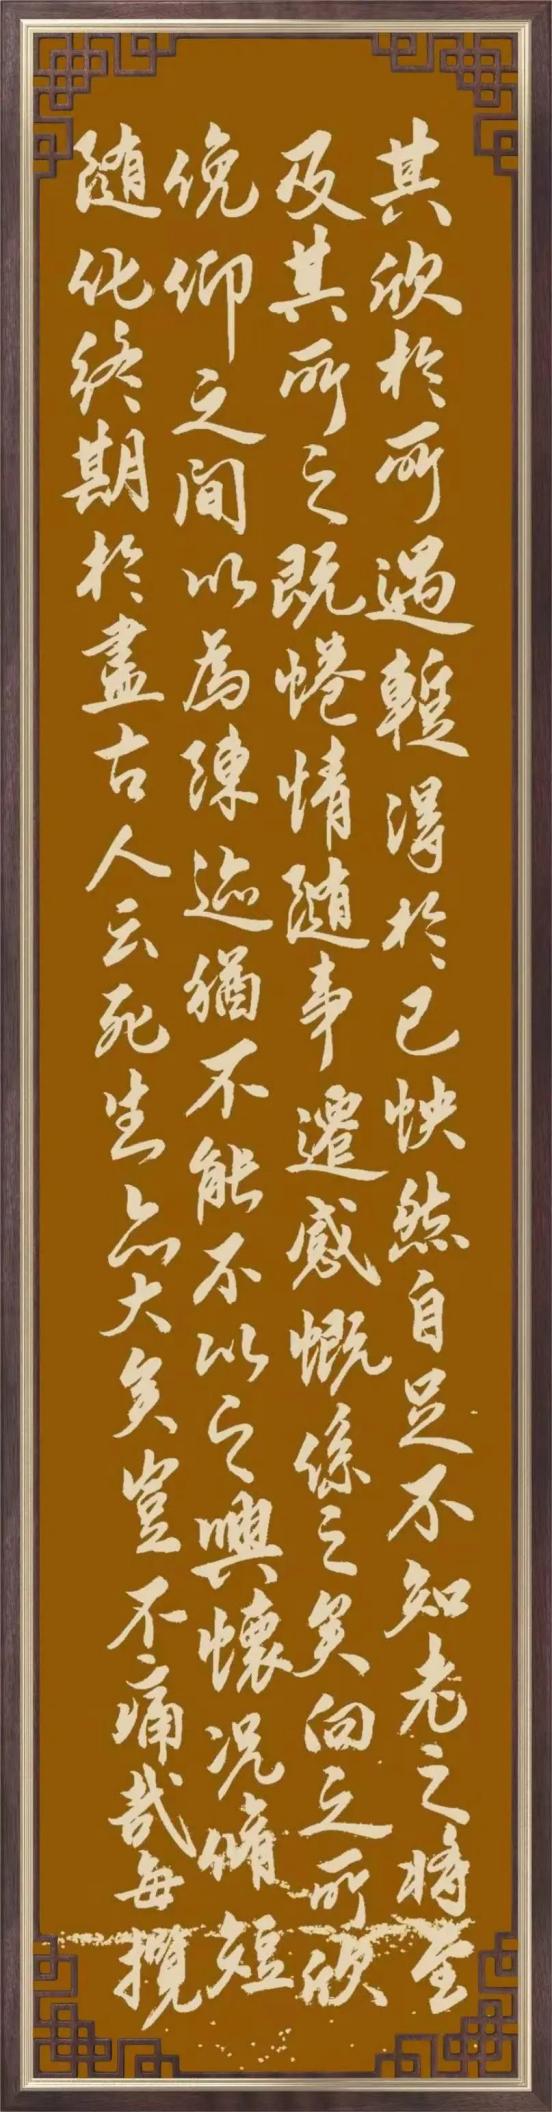 其欣於所遇蹔得於己怏然自足不知老之將至
及其所之既惓情隨事遷感慨係之矣向之所欣
俛仰之間以為陳迹猶不能不以之興懷況脩短
隨化終期於盡古人云死生亦大矣豈不痛哉每攬